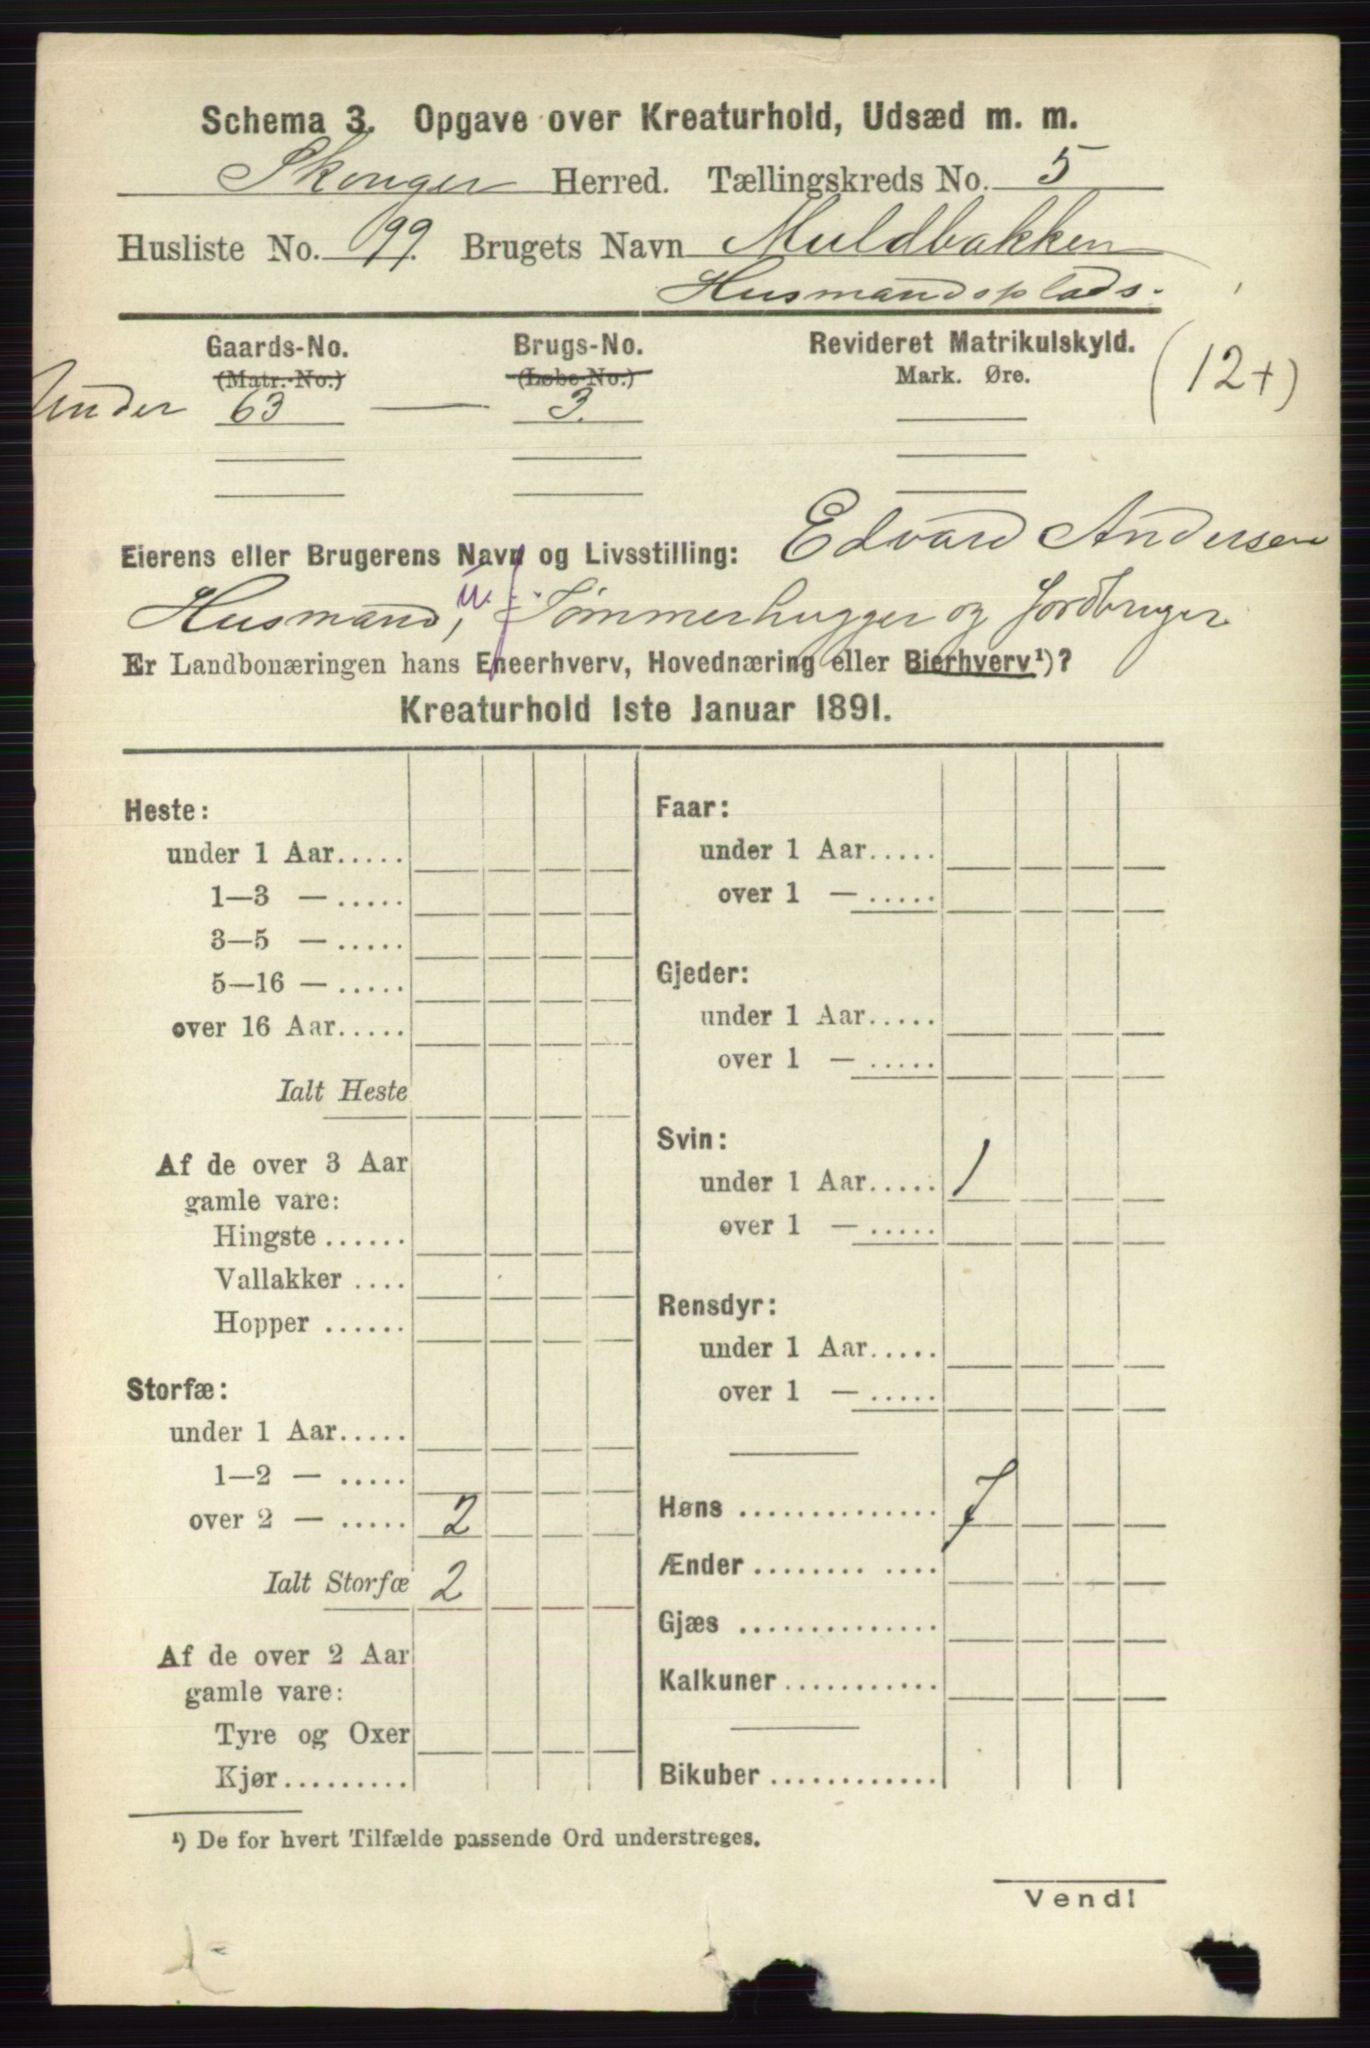 Schema 3. Opgave over Kreaturhold, Udsæd m. m.
Skonger Herred. Tællingskreds No. 5
Husliste No. 99. Brugets Navn Muldbakken
Husmandsplads.
Gaards-No. Brugs-No. Revideret Matrikulskyld.
(Matr.-No.) (Løbe-No.) Mark. Øre. (12+)
Under 63 — 3.
Eierens eller Brugerens Navn og Livsstilling: Edvard Andersen
Husmand, Tømmerhugger og Jordbruger
Er Landbonæringen hans Eneerhverv, Hovednæring eller Bierhverv¹)?
Kreaturhold 1ste Januar 1891.
Heste:
under 1 Aar.....
1—3 — .....
3—5 — .....
5—16 — .....
over 16 Aar.....
Ialt Heste
Af de over 3 Aar
gamle vare:
Hingste ......
Vallakker ....
Hopper ......
Storfæ:
under 1 Aar.....
1—2 — .....
over 2 — ..... 2
Ialt Storfæ 2
Af de over 2 Aar
gamle vare:
Tyre og Oxer
Kjør.........
Faar:
under 1 Aar.....
over 1 — .....
Gjeder:
under 1 Aar.....
over 1 — .....
Svin:
under 1 Aar..... 1
over 1 — .....
Rensdyr:
under 1 Aar.....
over 1 — .....
Høns .............. 7
Ænder........ ....
Gjæs ..............
Kalkuner...........
Bikuber ............
¹) De for hvert Tilfælde passende Ord understreges.
Vend!